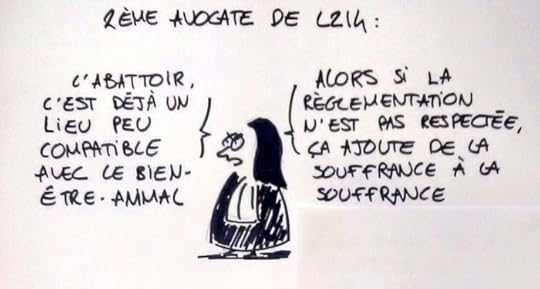 2ÈME AVOCATE DE L214 :
L'ABATTOIR,
C'EST DÉJÀ UN
LIEU PEU
COMPATIBLE
AVEC LE BIEN-
ÊTRE-ANIMAL
ALORS SI LA
RÈGLEMENTATION
N'EST PAS RESPECTÉE,
ÇA AJOUTE DE LA
SOUFFRANCE À LA
SOUFFRANCE